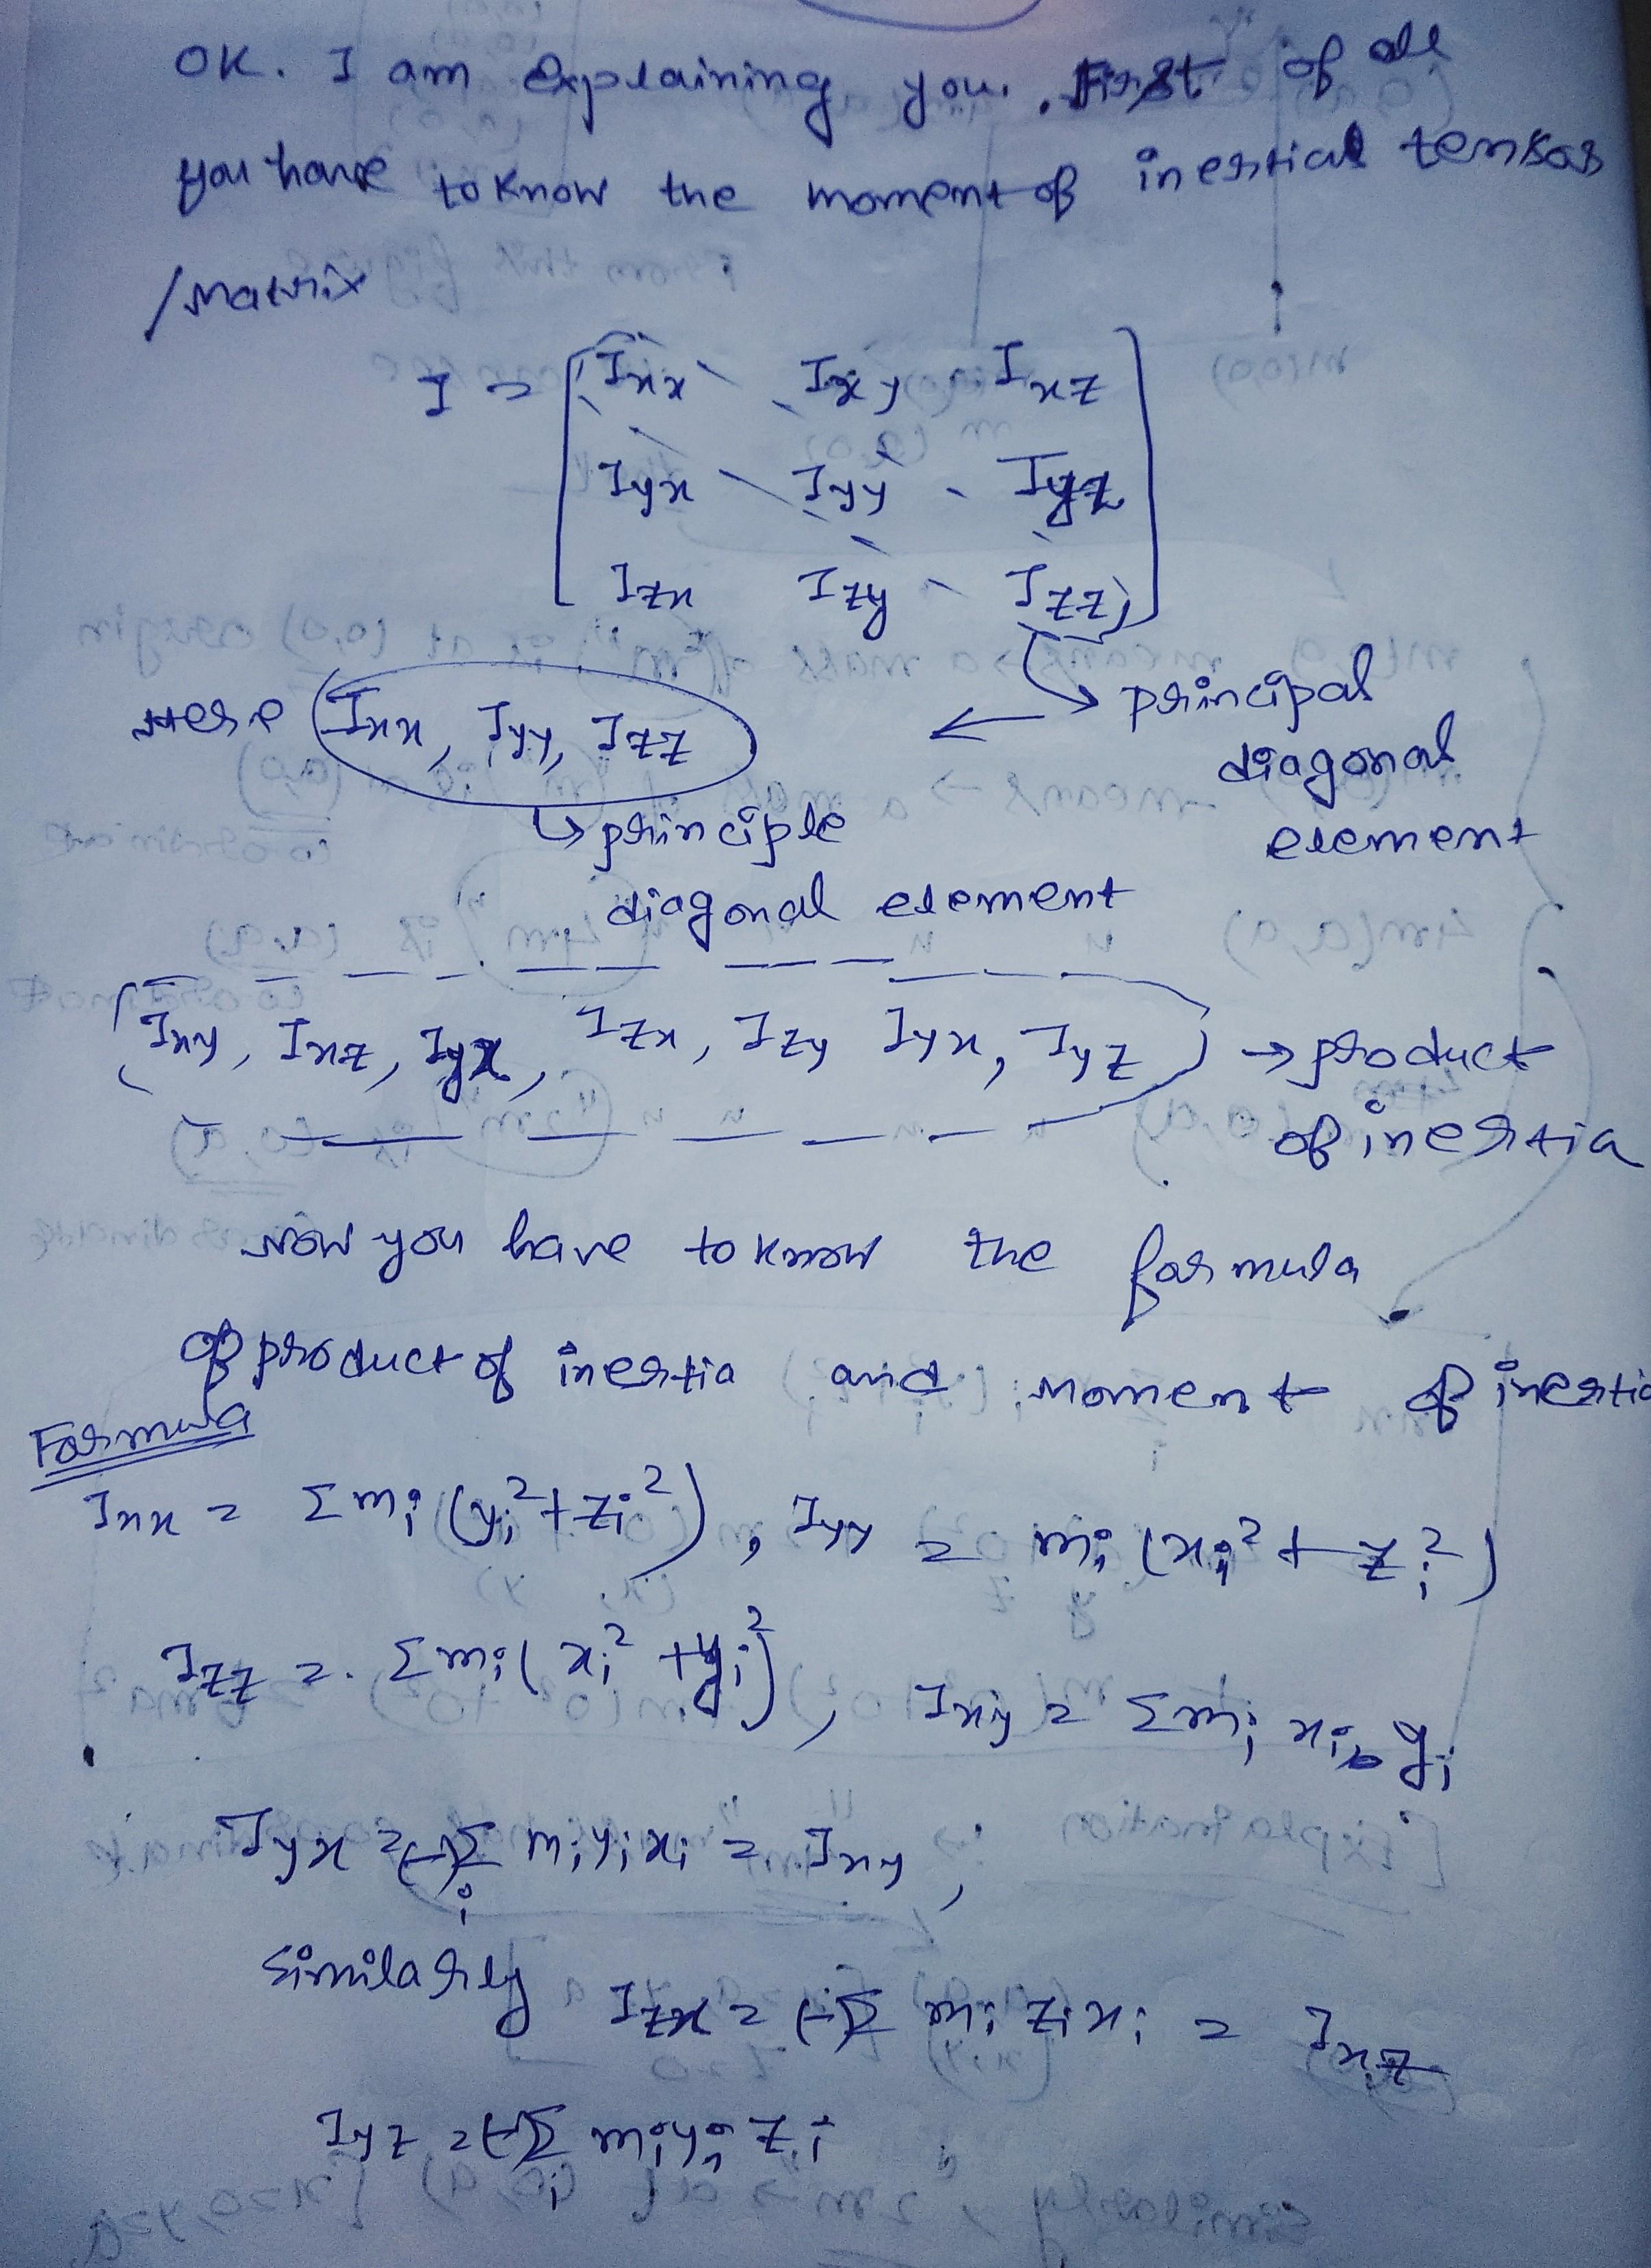 OK. I am explaining you. First of all
you have to know the moment of inertial tensor
/Matrix
I = [ Ixx Ixy Ixz
Iyx Iyy Iyz
Izx Izy Izz ]
principal
diagonal
element
Here Ixx, Iyy, Izz
↳ principle
diagonal element
Ixy, Ixz, Iyx, Izx, Izy Iyx, Iyz → product
of inertia
Now you have to know the formula
of product of inertia and moment of inertia
Formula
Ixx = Σmi (yi²+zi²), Iyy = mi (xi²+zi²)
Izz = Σmi(xi²+yi²), Ixy = Σmi xi yi
Iyx = (-)Σi mi yi xi = Ixy,
Similarly Izx = (-)Σ mi zi xi = Ixz
Iyz = (-)Σi mi yi zi